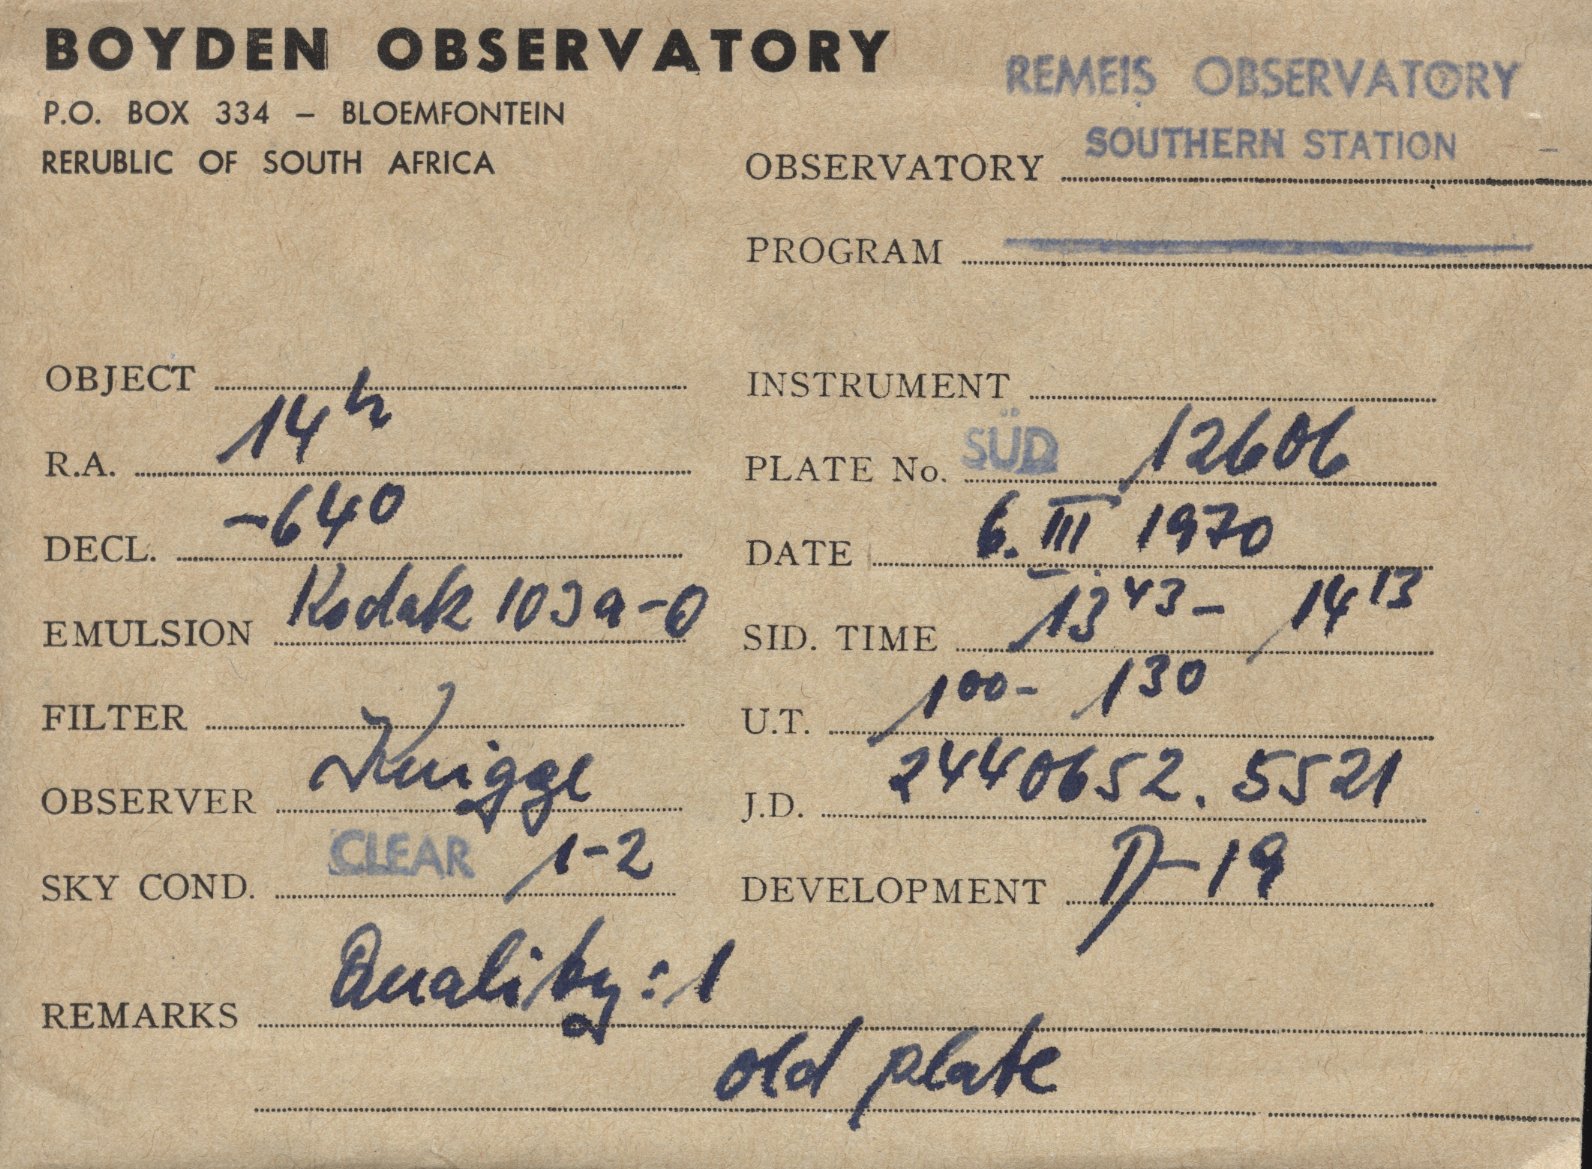 BOYDEN OBSERVATORY
P.O. BOX 334 – BLOEMFONTEIN
RERUBLIC OF SOUTH AFRICA
REMEIS OBSERVATORY
OBSERVATORY SOUTHERN STATION
PROGRAM
OBJECT
R.A. 14h
DECL. -640
EMULSION Kodak 103a-O
FILTER
OBSERVER Knigge
SKY COND. CLEAR 1-2
INSTRUMENT
PLATE No. SÜD 12606
DATE 6. III 1970
SID. TIME 13 43 - 14 13
U.T. 1 00 - 1 30
J.D. 2440652.5521
DEVELOPMENT D-19
REMARKS Quality: 1
old plate